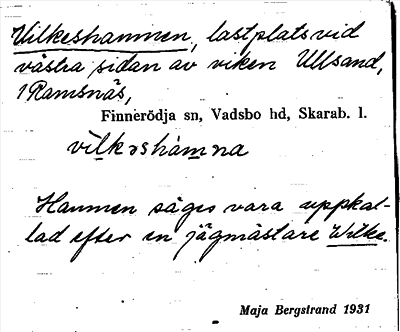 Vilkeshamnen, lastplats vid
västra sidan av viken Ullsand,
1 Ramsnäs,
Finnerödja sn, Vadsbo hd, Skarab. l.
vilkəshamna
Hamnen säges vara uppkal-
lad efter en jägmästare Wilke.
Maja Bergstrand 1931